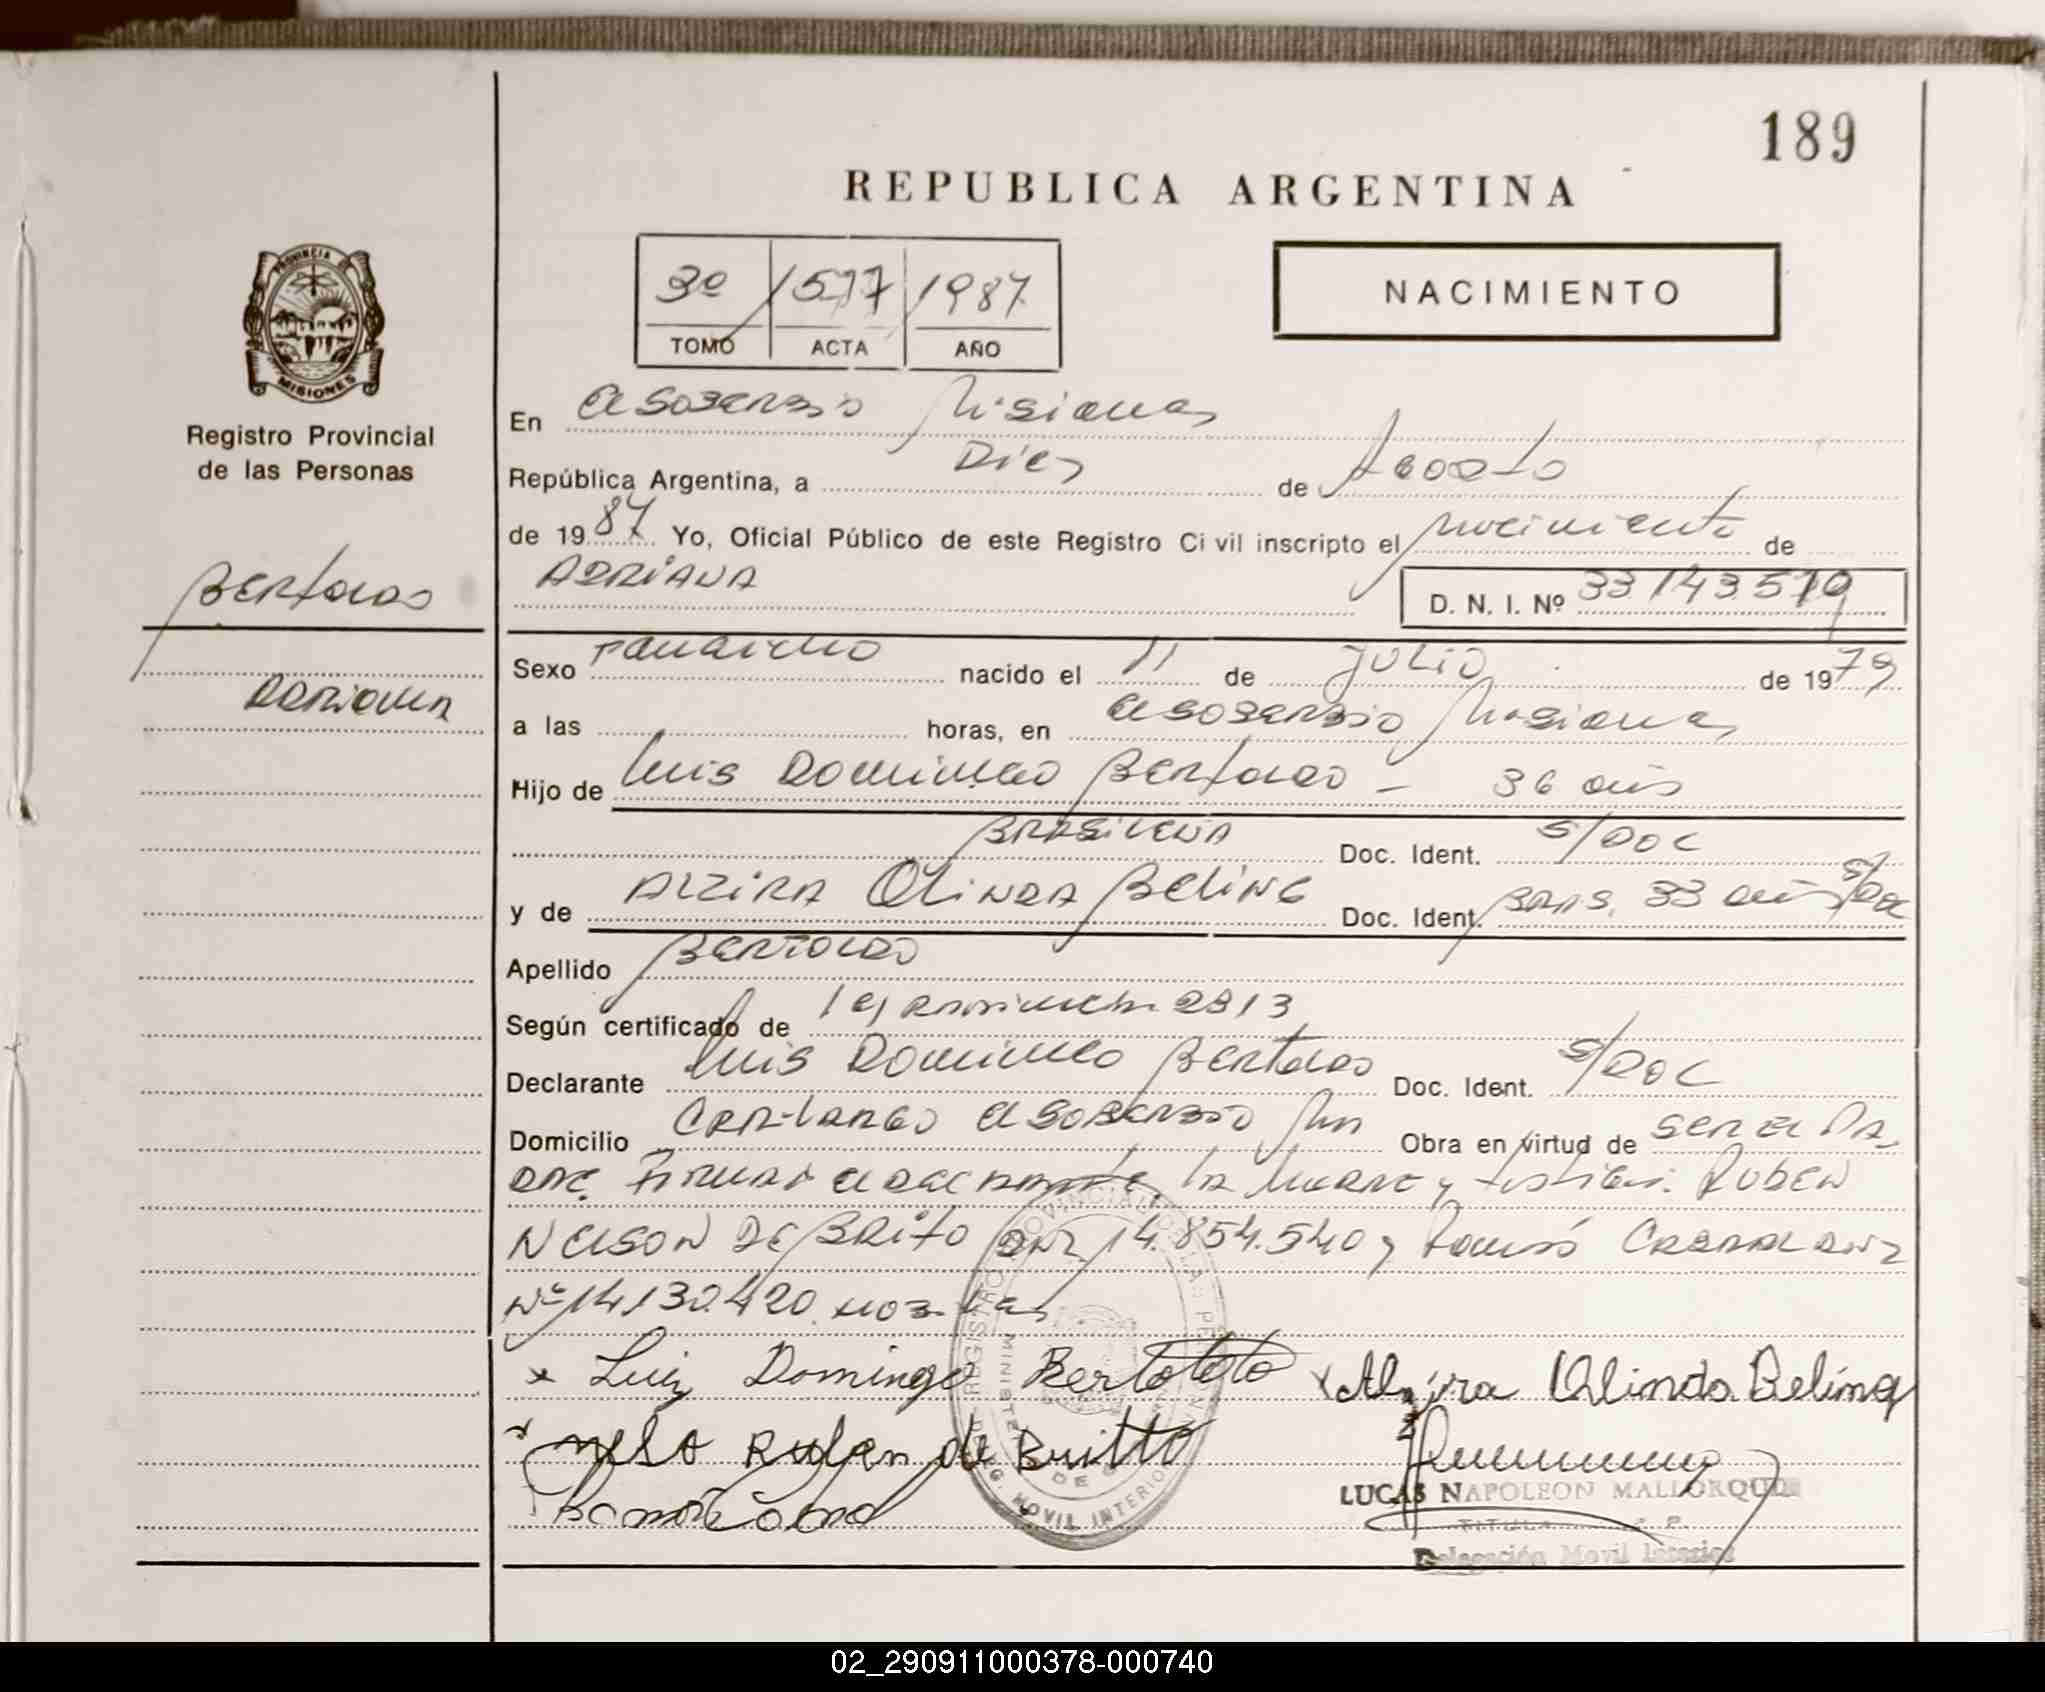 189
REPUBLICA ARGENTINA
3º 1577 1987
TOMO ACTA AÑO
NACIMIENTO
PROVINCIA DE MISIONES
Registro Provincial
de las Personas
En El Soberbio Misiones
República Argentina, a Diez de Agosto
de 1987 Yo, Oficial Público de este Registro Civil inscripto el nacimiento de
ADRIANA
D. N. I. Nº 33143519
Bertoldo
Adriana
Sexo Femenino nacido el 11 de Julio de 1979
a las horas, en El Soberbio Misiones
Hijo de Luis Domingo Bertoldo - 36 años
Brasileña Doc. Ident. S/DOC
y de Alzira Olinda Beling Doc. Ident. Bras. 33 años S/Doc
Apellido Bertoldo
Según certificado de 2813
Declarante Luis Domingo Bertoldo Doc. Ident. S/DOC
Domicilio El Soberbio Obra en virtud de ser el Pa
dre. Firman el declarante, la Madre y testigos: Ruben
Nelson De Brito DNI 14.854.540 y Ramón Cabral DNI
Nº 14.130.420
x Luiz Domingo Bertololo x Alzira Olinda Beling
Ruben de Britto
Ramon Cabral
REGISTRO PROVINCIAL DE LAS PERSONAS
MINISTERIO DE G
DELEG. MOVIL INTERIOR
LUCAS NAPOLEON MALLORQUIN
TITULAR
Delegación Movil Interior
02_290911000378-000740